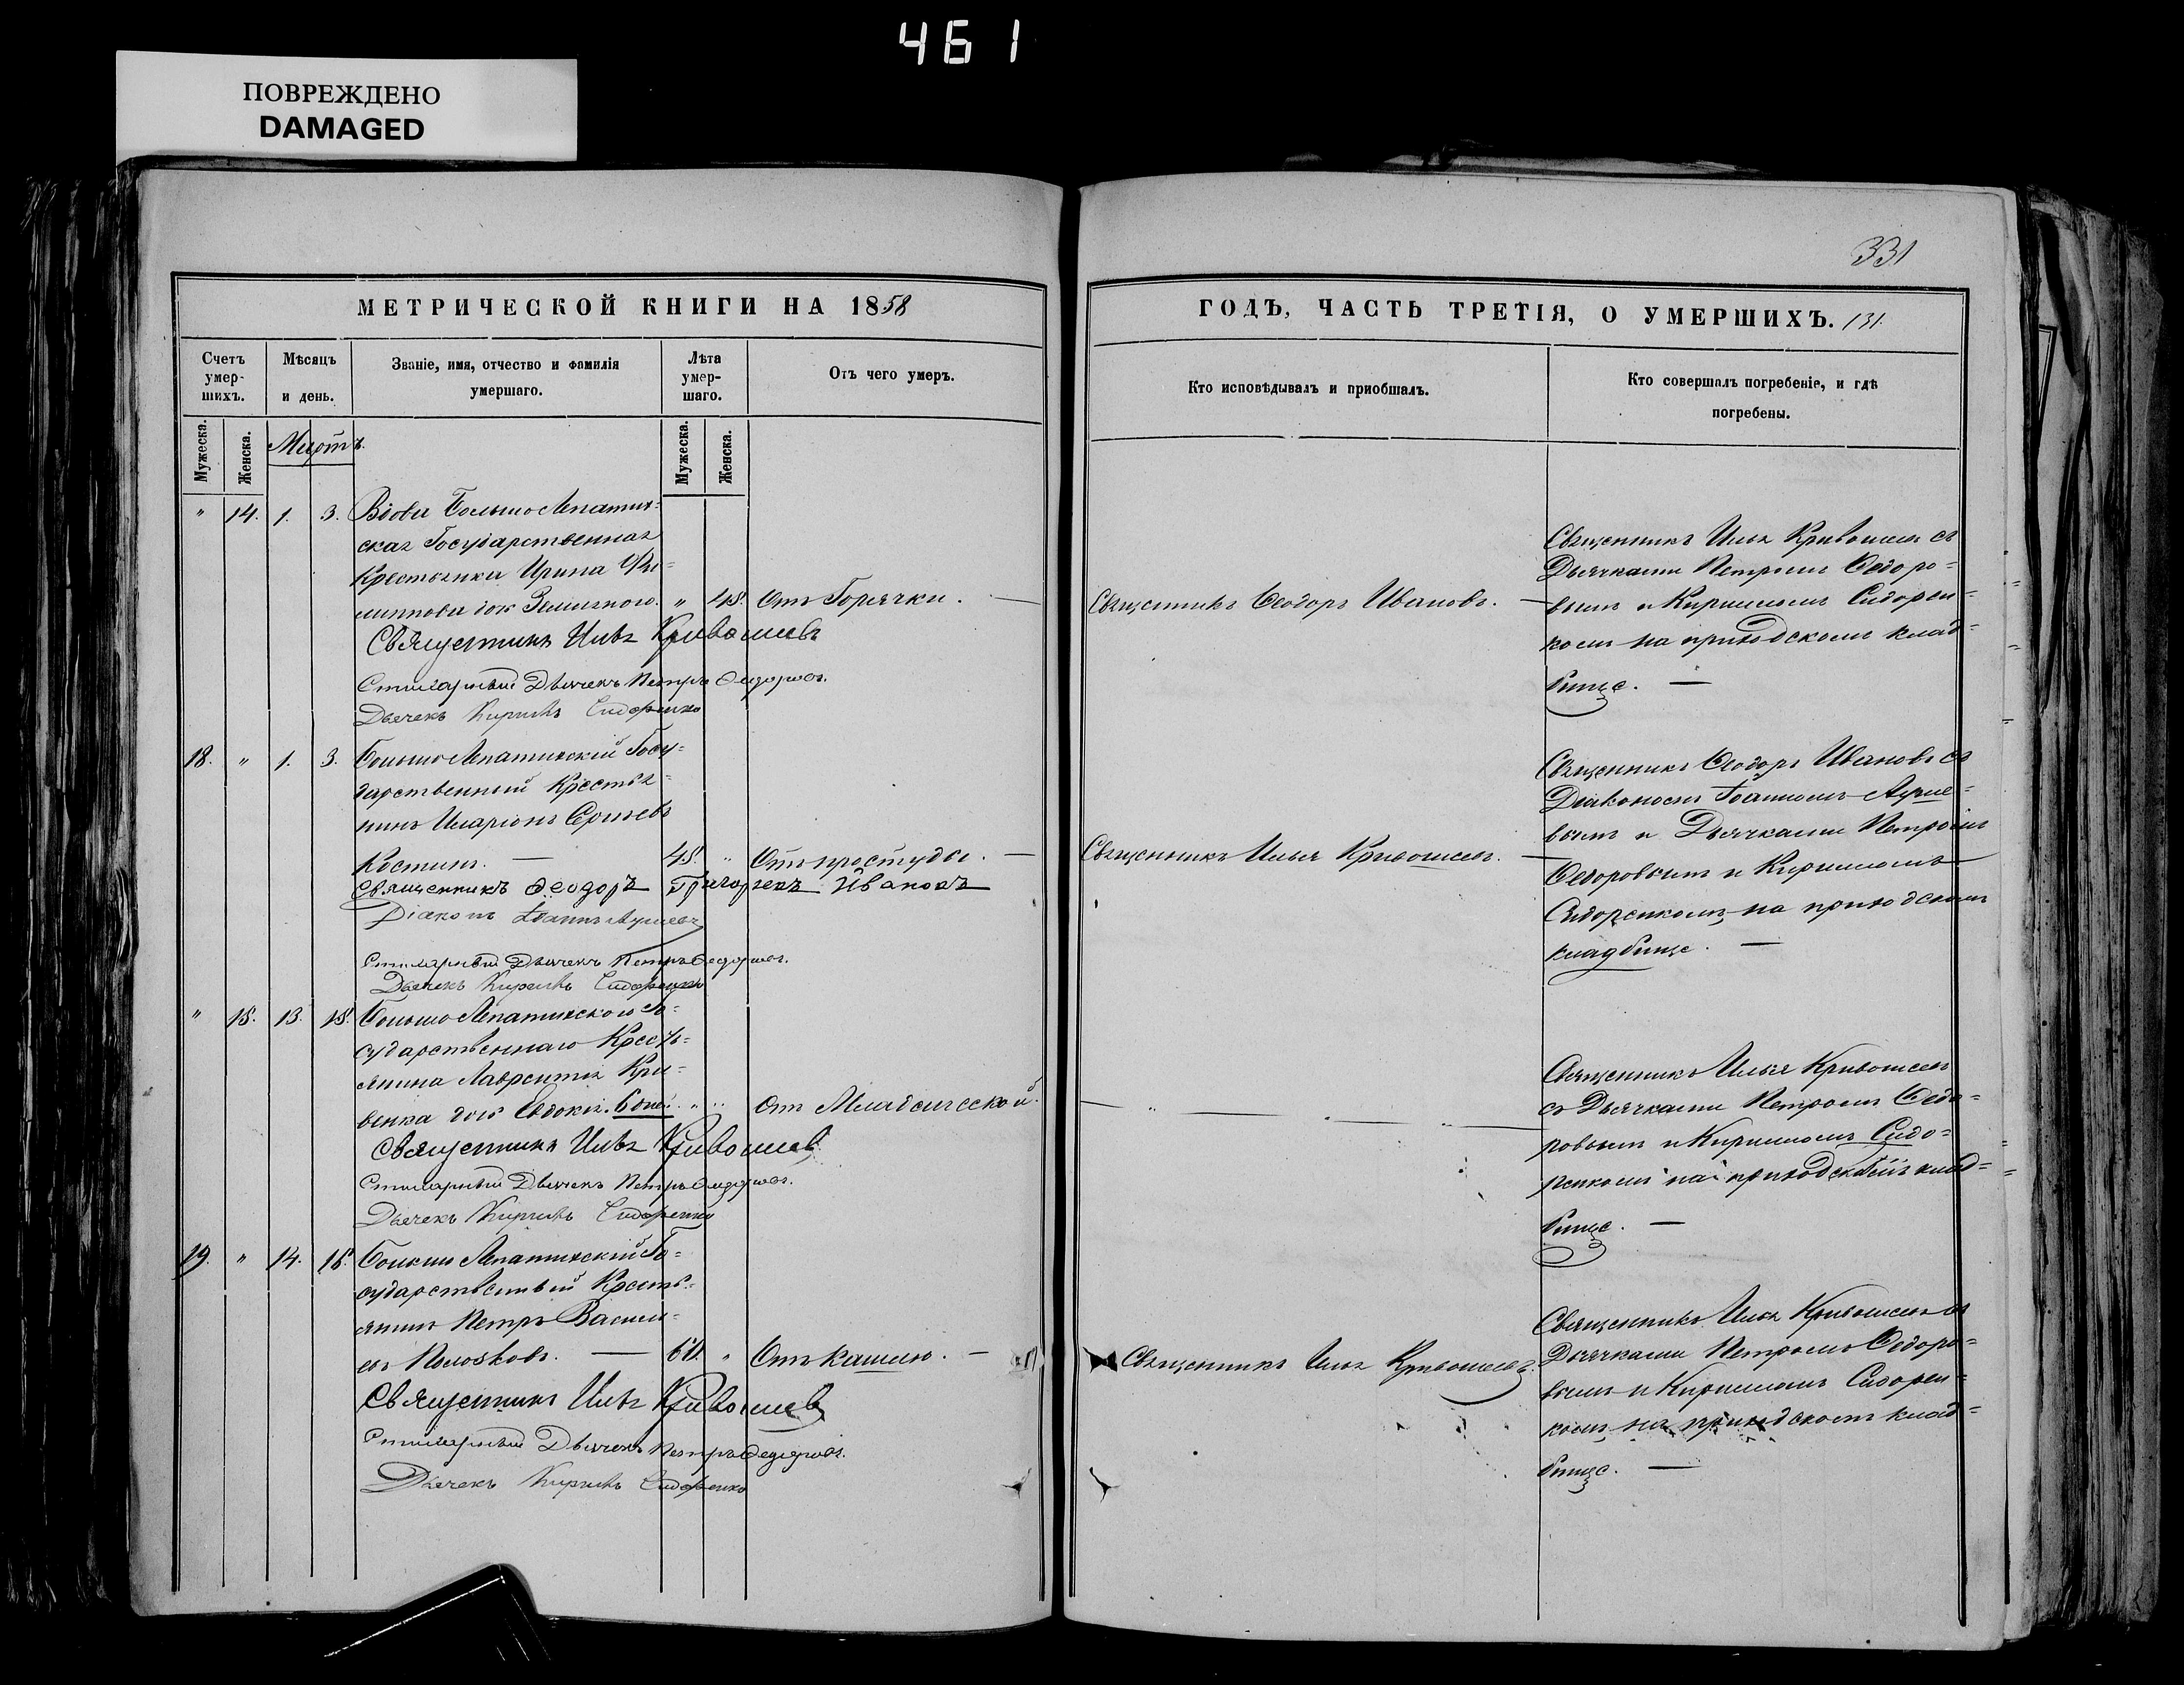 461
ПОВРЕЖДЕНО
DAMAGED
331
МЕТРИЧЕСКОЙ КНИГИ НА 1858
ГОДЪ, ЧАСТЬ ТРЕТІЯ, О УМЕРШИХЪ. 131.
Счетъ умер-шихъ.
Мѣсяцъ и день.
Званіе, имя, отчество и фамилія умершаго.
Лѣта умер-шаго.
Отъ чего умеръ.
Кто исповѣдывалъ и приобщалъ.
Кто совершалъ погребеніе, и гдѣ погребены.
Мужеска.
Женска.
Мартъ.
Мужеска.
Женска.
" 14. 1. 3. Вдова Большо Лепатих-
ская Государственная
Крестьянка Ирина Фи-
липпова " 48. Отъ Горячки. —
Священникъ Илья Кривошеев
Стихарный Дьячекъ Петръ Федоровъ.
Дьячекъ Кирилъ Сидоренко
Священникъ Ѳеодоръ Ивановъ. —
Священникъ Илья Кривошеев съ
Дьячками Петромъ Ѳедоро-
вымъ и Кириломъ Сидорен-
комъ на приходскомъ клад-
бище. —
18. " 1. 3. Большо Лепатихскій Госу-
дарственный Крестья-
нинъ Иларіонъ Сергѣевъ
Костинъ. — 48. " Отъ простуды. —
Священникъ Ѳеодоръ Григорьевъ Ивановъ
Діаконъ Іоаннъ
Стихарный Дьячекъ Петръ Федоровъ.
Дьячекъ Кирилъ Сидоренко
Священникъ Илья Кривошеев. —
Священникъ Ѳеодоръ Ивановъ съ
Діакономъ Іоанномъ
вымъ и Дьячками Петромъ
Ѳедоровымъ и Кириломъ
Сидоренкомъ на приходскомъ
кладбище. —
" 15. 13. 15. Большо Лепатихского Го-
сударственнаго Кресть-
янина Лаврентія Кри-
венка дочь Евдокія. 6 дней. " " Отъ Младенческой.
Священникъ Илья Кривошеев
Стихарный Дьячекъ Петръ Федоровъ.
Дьячекъ Кирилъ Сидоренко
Священникъ Илья Кривошеев
съ Дьячками Петромъ Ѳедо-
ровымъ и Кириломъ Сидо-
ренкомъ на приходскомъ клад-
бище. —
19. " 14. 16. Большо Лепатихскій Го-
сударственный Кресть-
янинъ Петръ Васильевъ
— 60. " Отъ кашлю. —
Священникъ Илья Кривошеев
Стихарный Дьячекъ Петръ Федоровъ.
Дьячекъ Кирилъ Сидоренко
Священникъ Илья Кривошеевъ.
Священникъ Илья Кривошеев съ
Дьячками Петромъ Ѳедоро-
вымъ и Кириломъ Сидорен-
комъ на приходскомъ клад-
бище. —